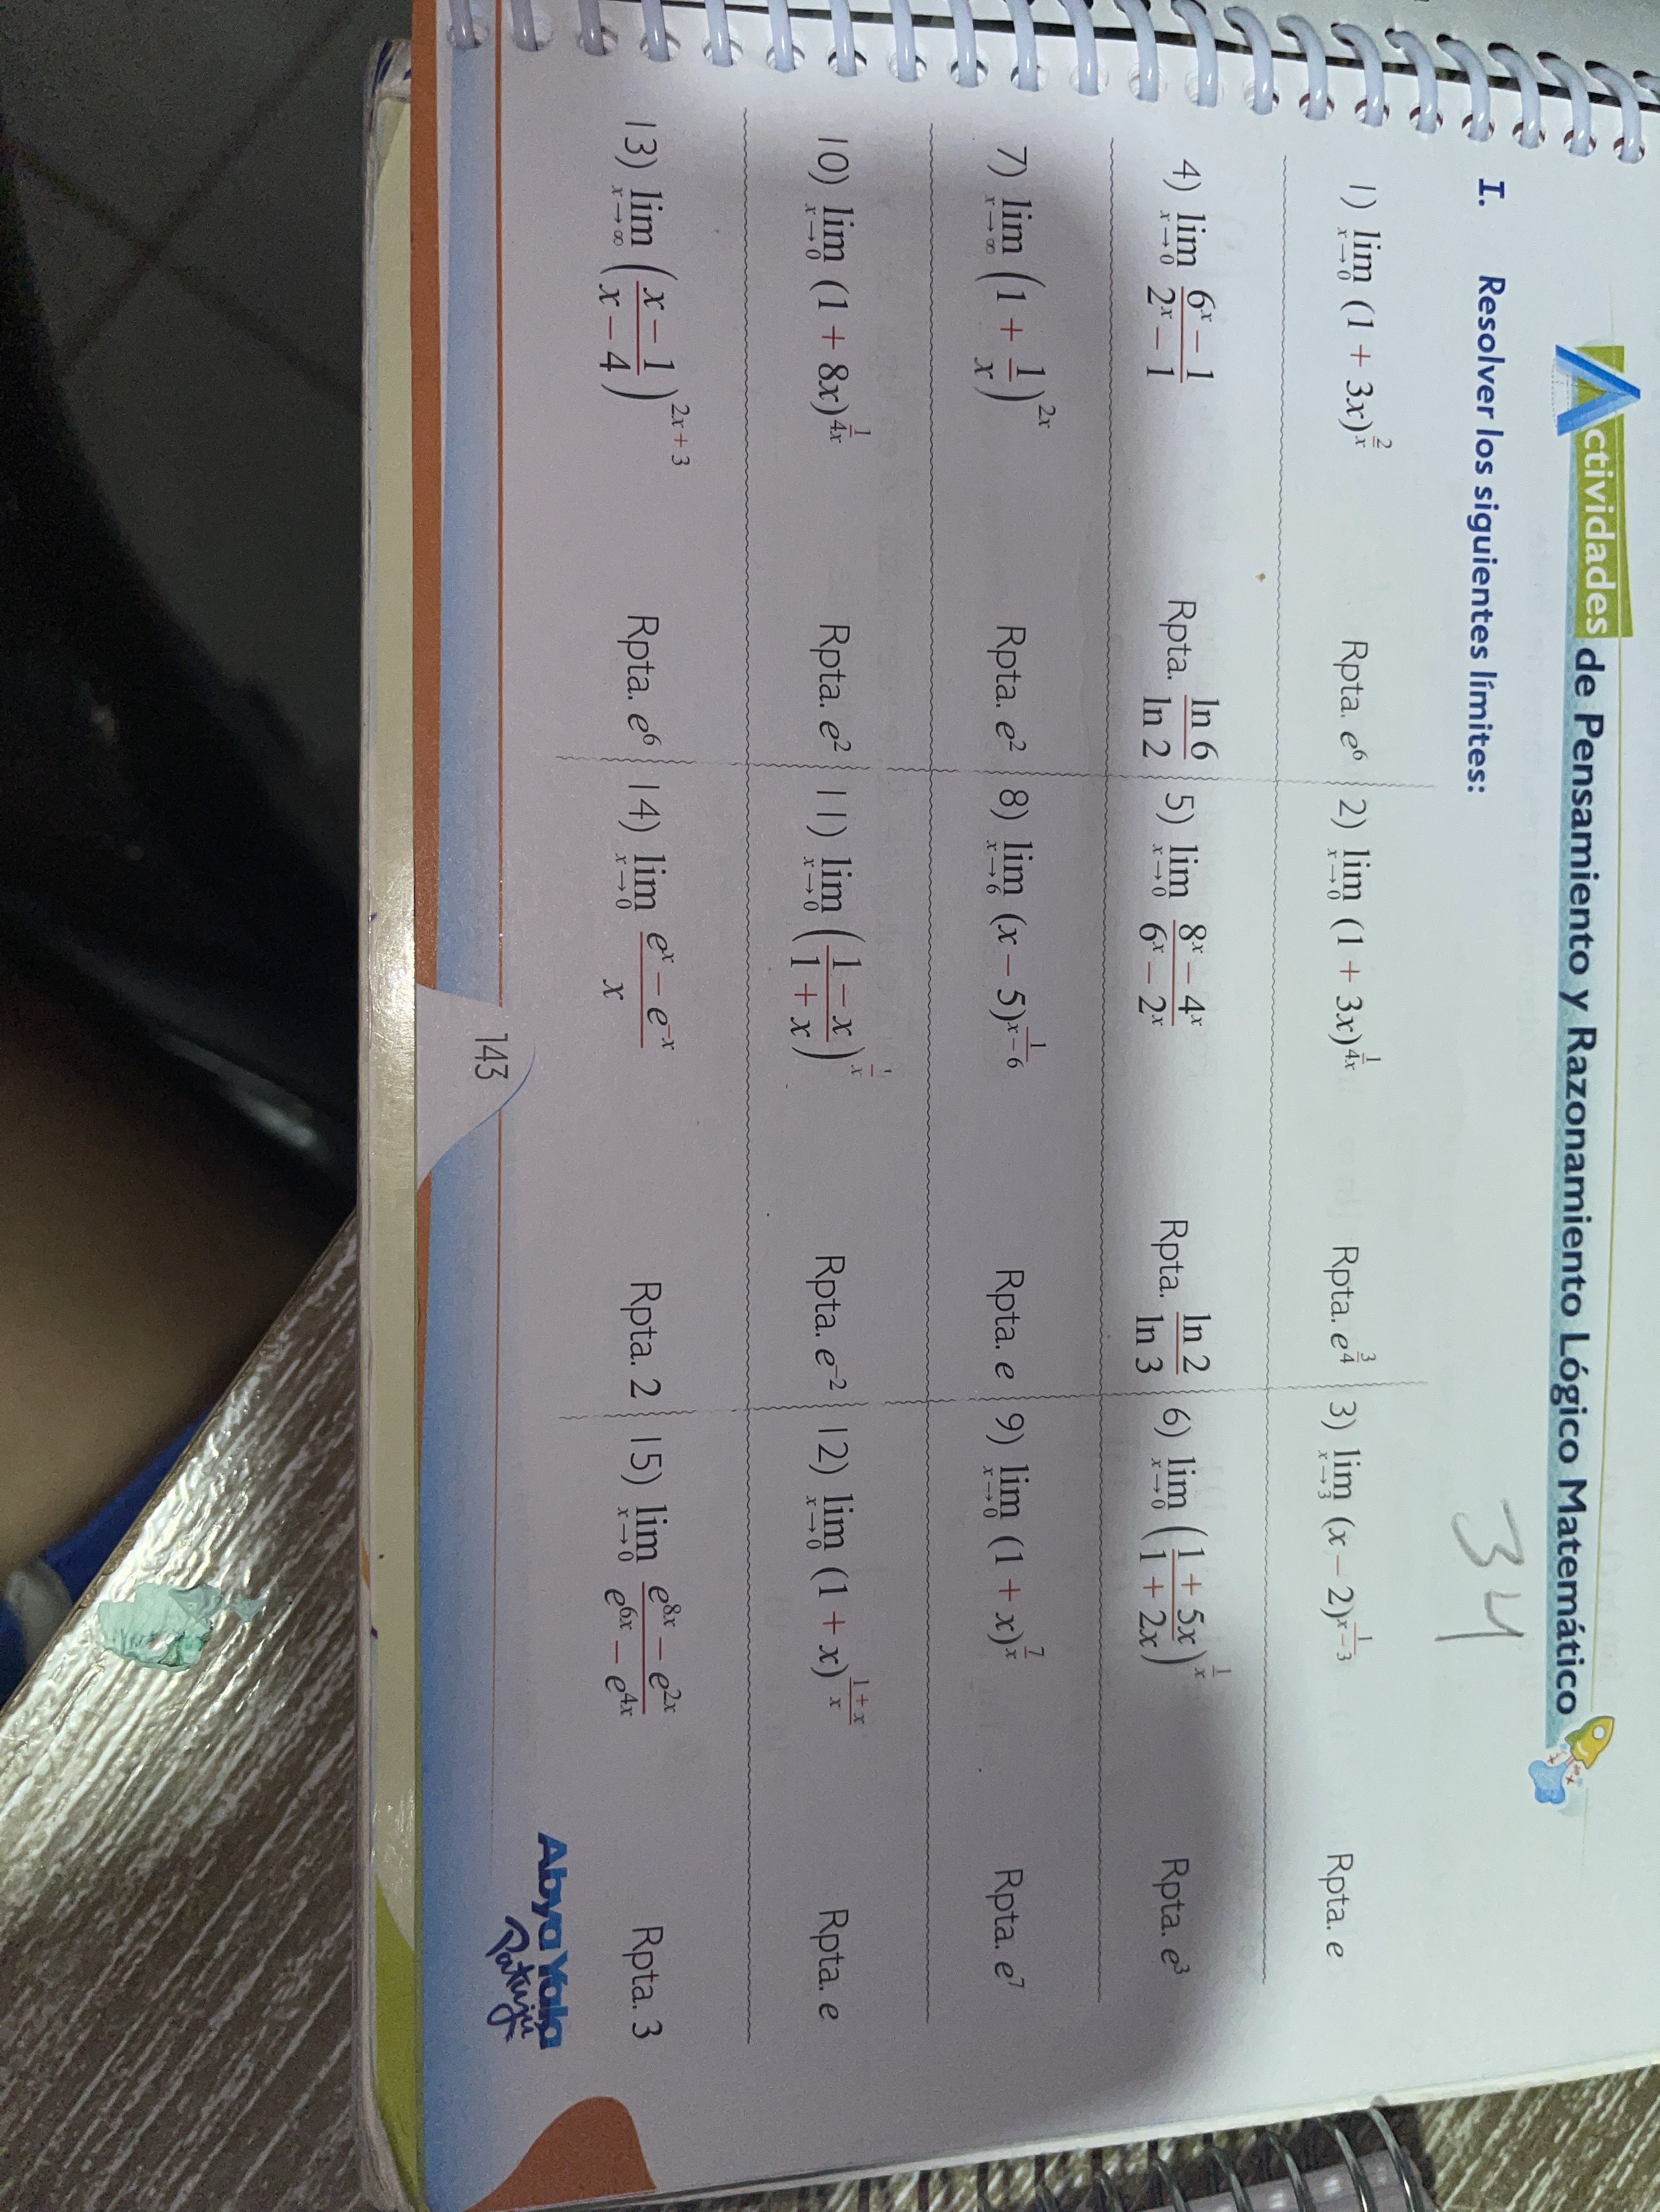 Actividades de Pensamiento y Razonamiento Lógico Matemático
34
I. Resolver los siguientes límites:
1) lim x→0 (1 + 3x)^(2/x) Rpta. e^6 2) lim x→0 (1 + 3x)^(1/4x) Rpta. e^(3/4) 3) lim x→3 (x − 2)^(1/(x − 3)) Rpta. e
4) lim x→0 (6^x − 1)/(2^x − 1) Rpta. ln 6/ln 2 5) lim x→0 (8^x − 4^x)/(6^x − 2^x) Rpta. ln 2/ln 3 6) lim x→0 ((1 + 5x)/(1 + 2x))^(1/x) Rpta. e^3
7) lim x→∞ (1 + 1/x)^(2x) Rpta. e^2 8) lim x→6 (x − 5)^(1/(x − 6)) Rpta. e 9) lim x→0 (1 + x)^(7/x) Rpta. e^7
10) lim x→0 (1 + 8x)^(1/4x) Rpta. e^2 11) lim x→0 ((1 − x)/(1 + x))^(1/x) Rpta. e^(−2) 12) lim x→0 (1 + x)^((1 + x)/x) Rpta. e
13) lim x→∞ ((x − 1)/(x − 4))^(2x + 3) Rpta. e^6 14) lim x→0 (e^x − e^(−x))/x Rpta. 2 15) lim x→0 (e^(8x) − e^(2x))/(e^(6x) − e^(4x)) Rpta. 3
143
Abya Yala
Patujú